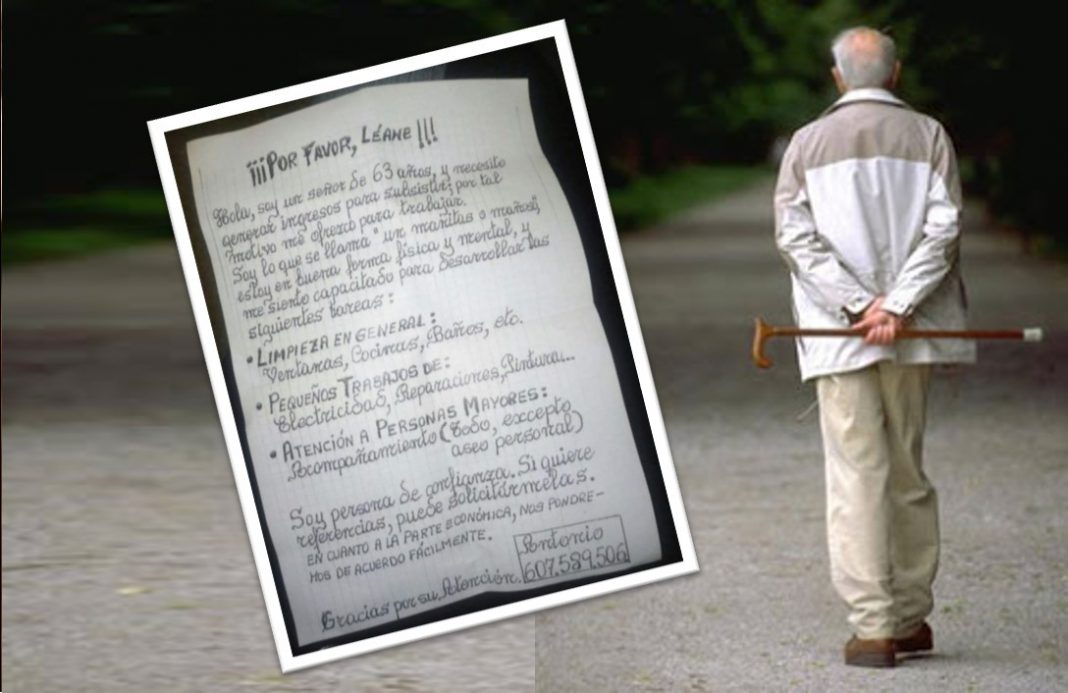 ¡¡¡POR FAVOR, LÉAME!!!
Hola, soy un señor de 63 años, y necesito
generar ingresos para subsistir; por tal
motivo me ofrezco para trabajar.
Soy lo que se llama "un manitas o mañosi,
estoy en buena forma física y mental, y
me siento capacitado para desarrollar las
siguientes tareas:
• LIMPIEZA EN GENERAL:
Ventanas, Cocinas, Baños, etc.
• PEQUEÑOS TRABAJOS DE:
Electricidad, Reparaciones, Pintura...
• ATENCIÓN A PERSONAS MAYORES:
Acompañamiento (Todo, excepto
aseo personal)
Soy persona de confianza. Si quiere
referencias, puede solicitármelas.
EN CUANTO A LA PARTE ECONÓMICA, NOS PONDRE-
MOS DE ACUERDO FÁCILMENTE.
Gracias por su Atención.
Antonio
607.589.506